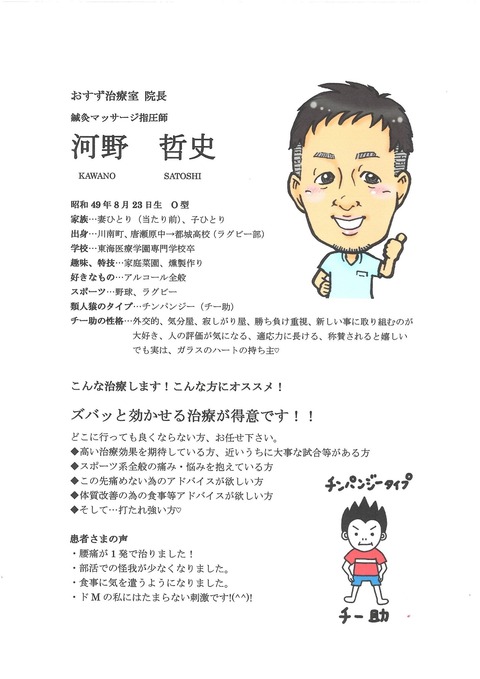 おすず治療室 院長
鍼灸マッサージ指圧師
河野 哲史
KAWANO SATOSHI
昭和49年8月23日生 O型
家族…妻ひとり（当たり前）、子ひとり
出身…川南町、唐瀬原中→都城高校（ラグビー部）
学校…東海医療学園専門学校卒
趣味、特技…家庭菜園、燻製作り
好きなもの…アルコール全般
スポーツ…野球、ラグビー
類人猿のタイプ…チンパンジー（チー助）
チー助の性格…外交的、気分屋、寂しがり屋、勝ち負け重視、新しい事に取り組むのが
大好き、人の評価が気になる、適応力に長ける、称賛されると嬉しい
でも実は、ガラスのハートの持ち主♡
こんな治療します！こんな方にオススメ！
ズバッと効かせる治療が得意です！！
どこに行っても良くならない方、お任せ下さい。
◆高い治療効果を期待している方、近いうちに大事な試合等がある方
◆スポーツ系全般の痛み・悩みを抱えている方
◆この先痛めない為のアドバイスが欲しい方
◆体質改善の為の食事等アドバイスが欲しい方
◆そして…打たれ強い方♡
チンパンジータイプ
チー助
患者さまの声
・腰痛が1発で治りました！
・部活での怪我が少なくなりました。
・食事に気を遣うようになりました。
・ドMの私にはたまらない刺激です!(^^)!